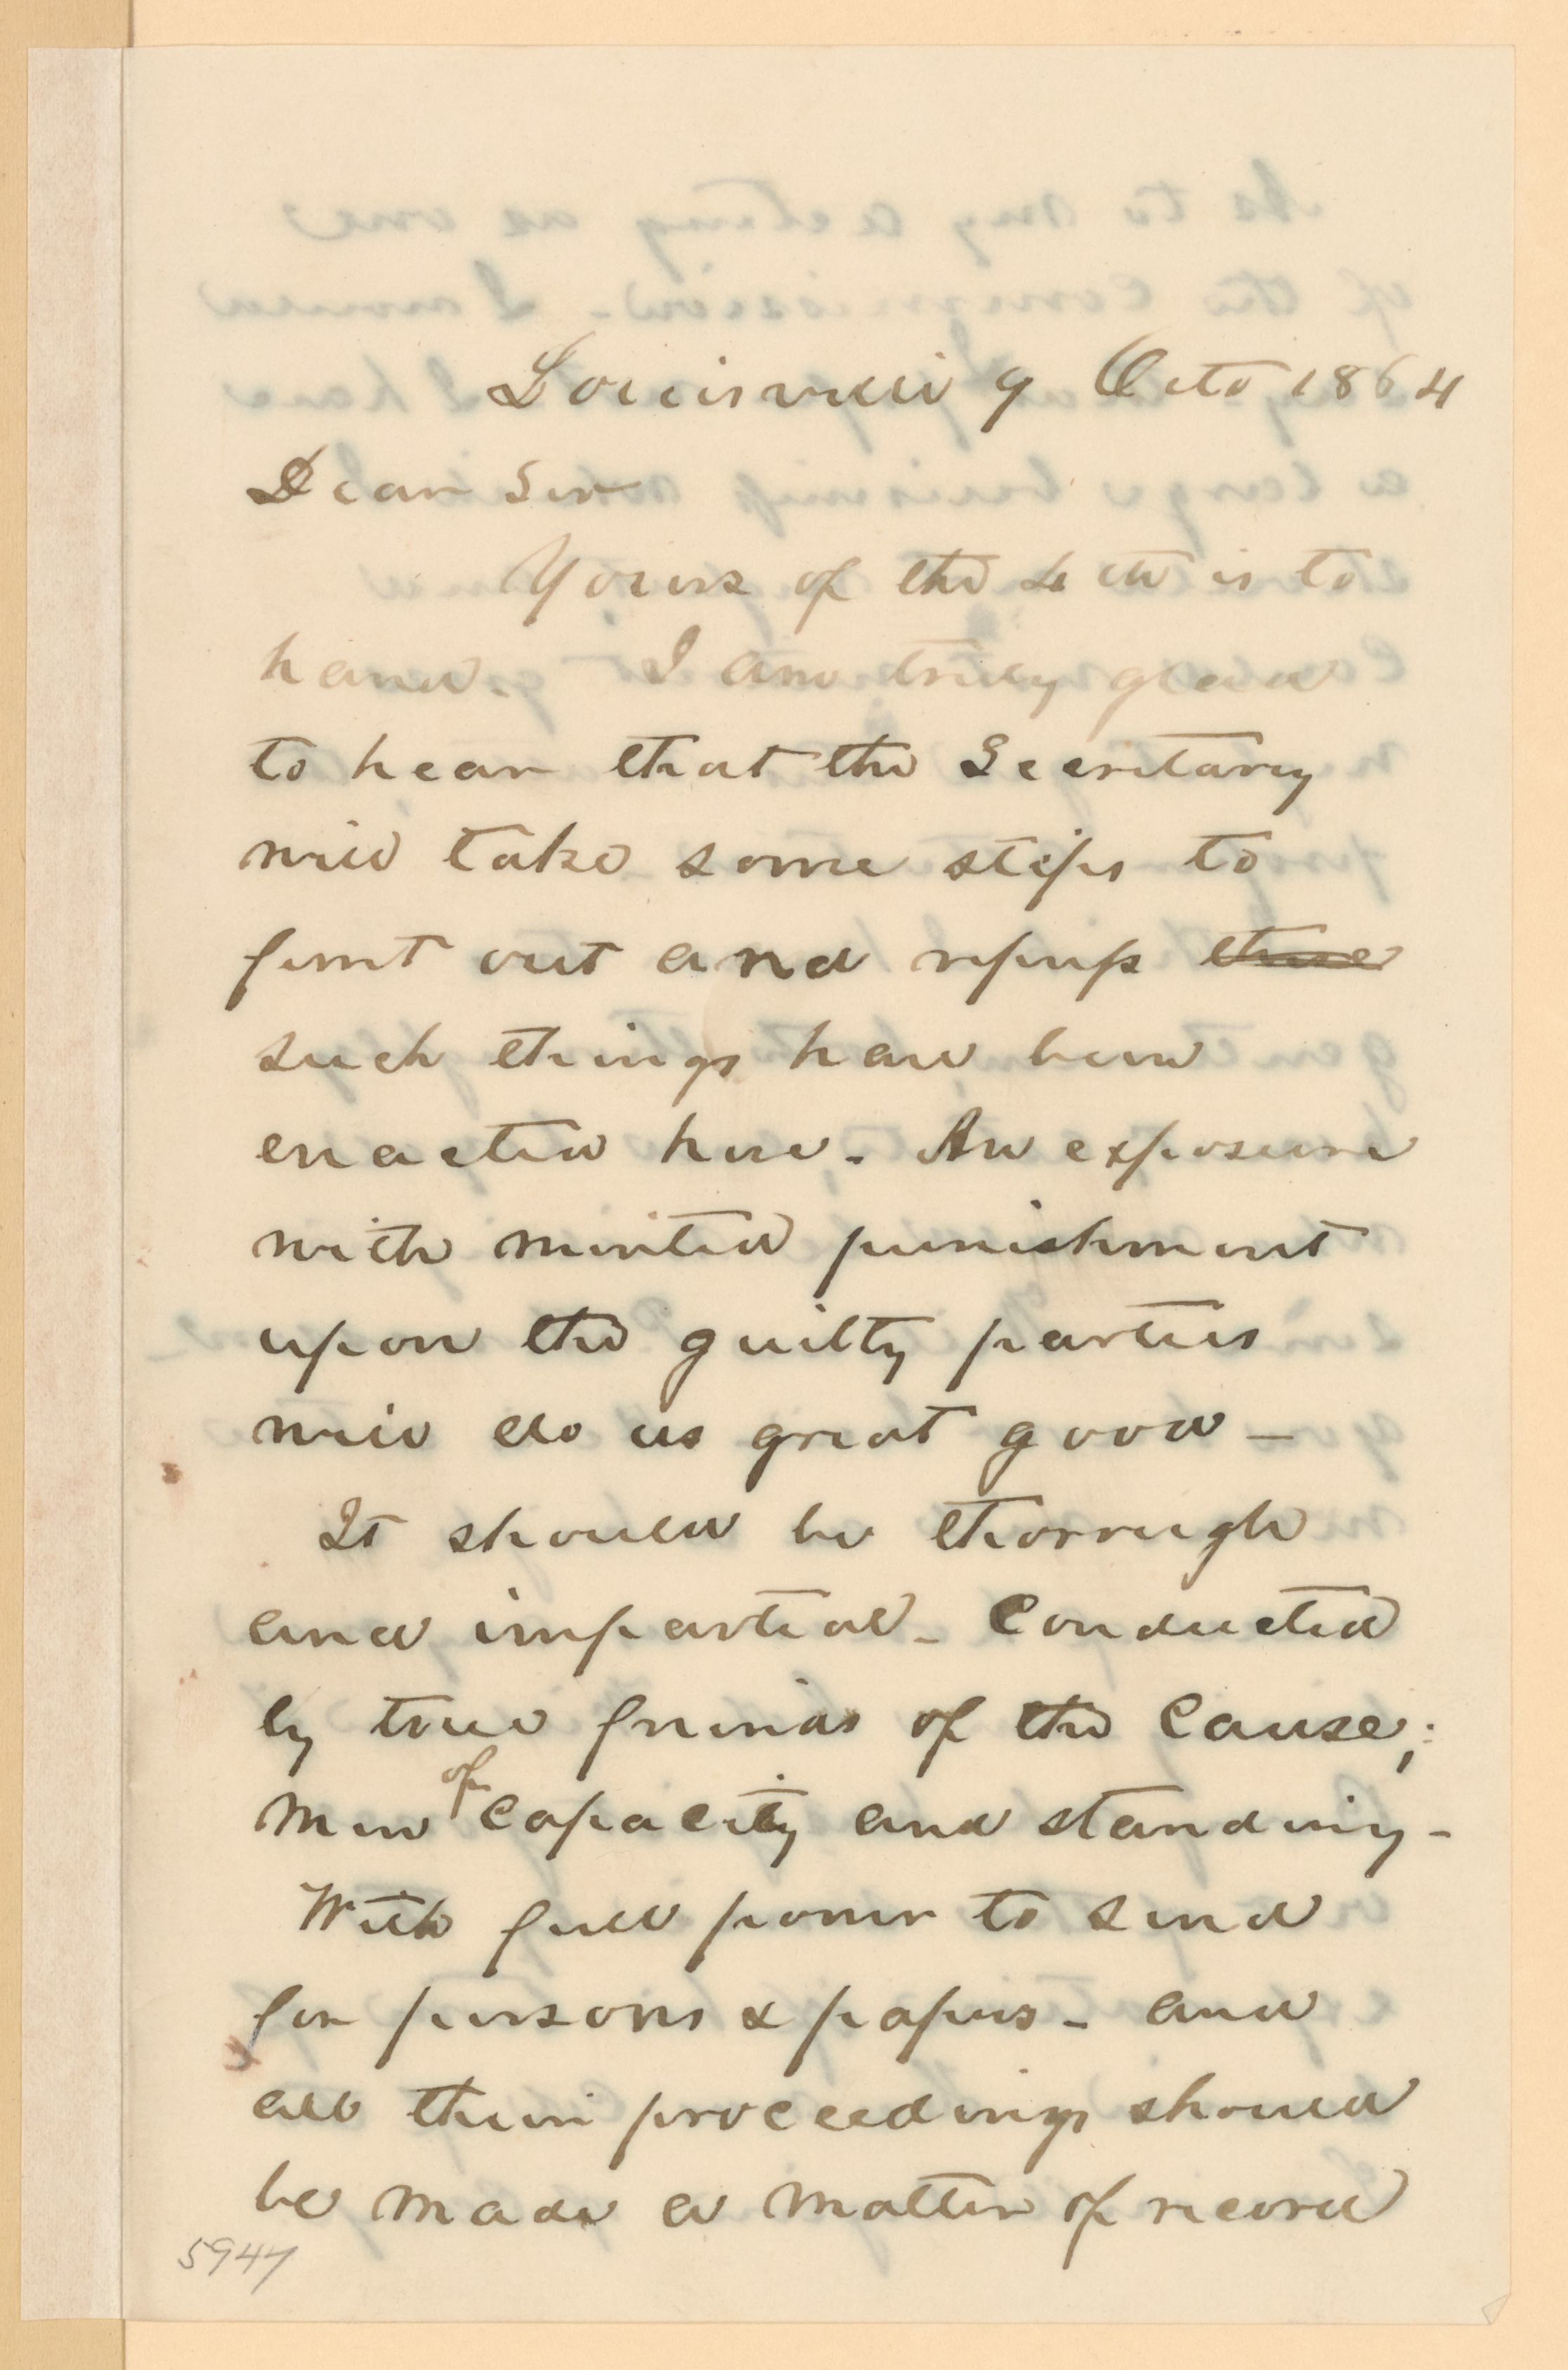 Louisville 9 Octo 1864
Dear Sir
Yours of the 4th is to
hand. I am truly glad
to hear that the Secretary
will take some steps to
ferret out and repress those
such things have been
enacted here. An exposure
with merited punishment
upon the guilty parties
will do us great good _
It should be thorough
and impartial _ Conducted
by true friends of the Cause;
men of capacity and standing -
With full power to send
for persons & papers _ and
all their proceedings should
be made a matter of record
5947